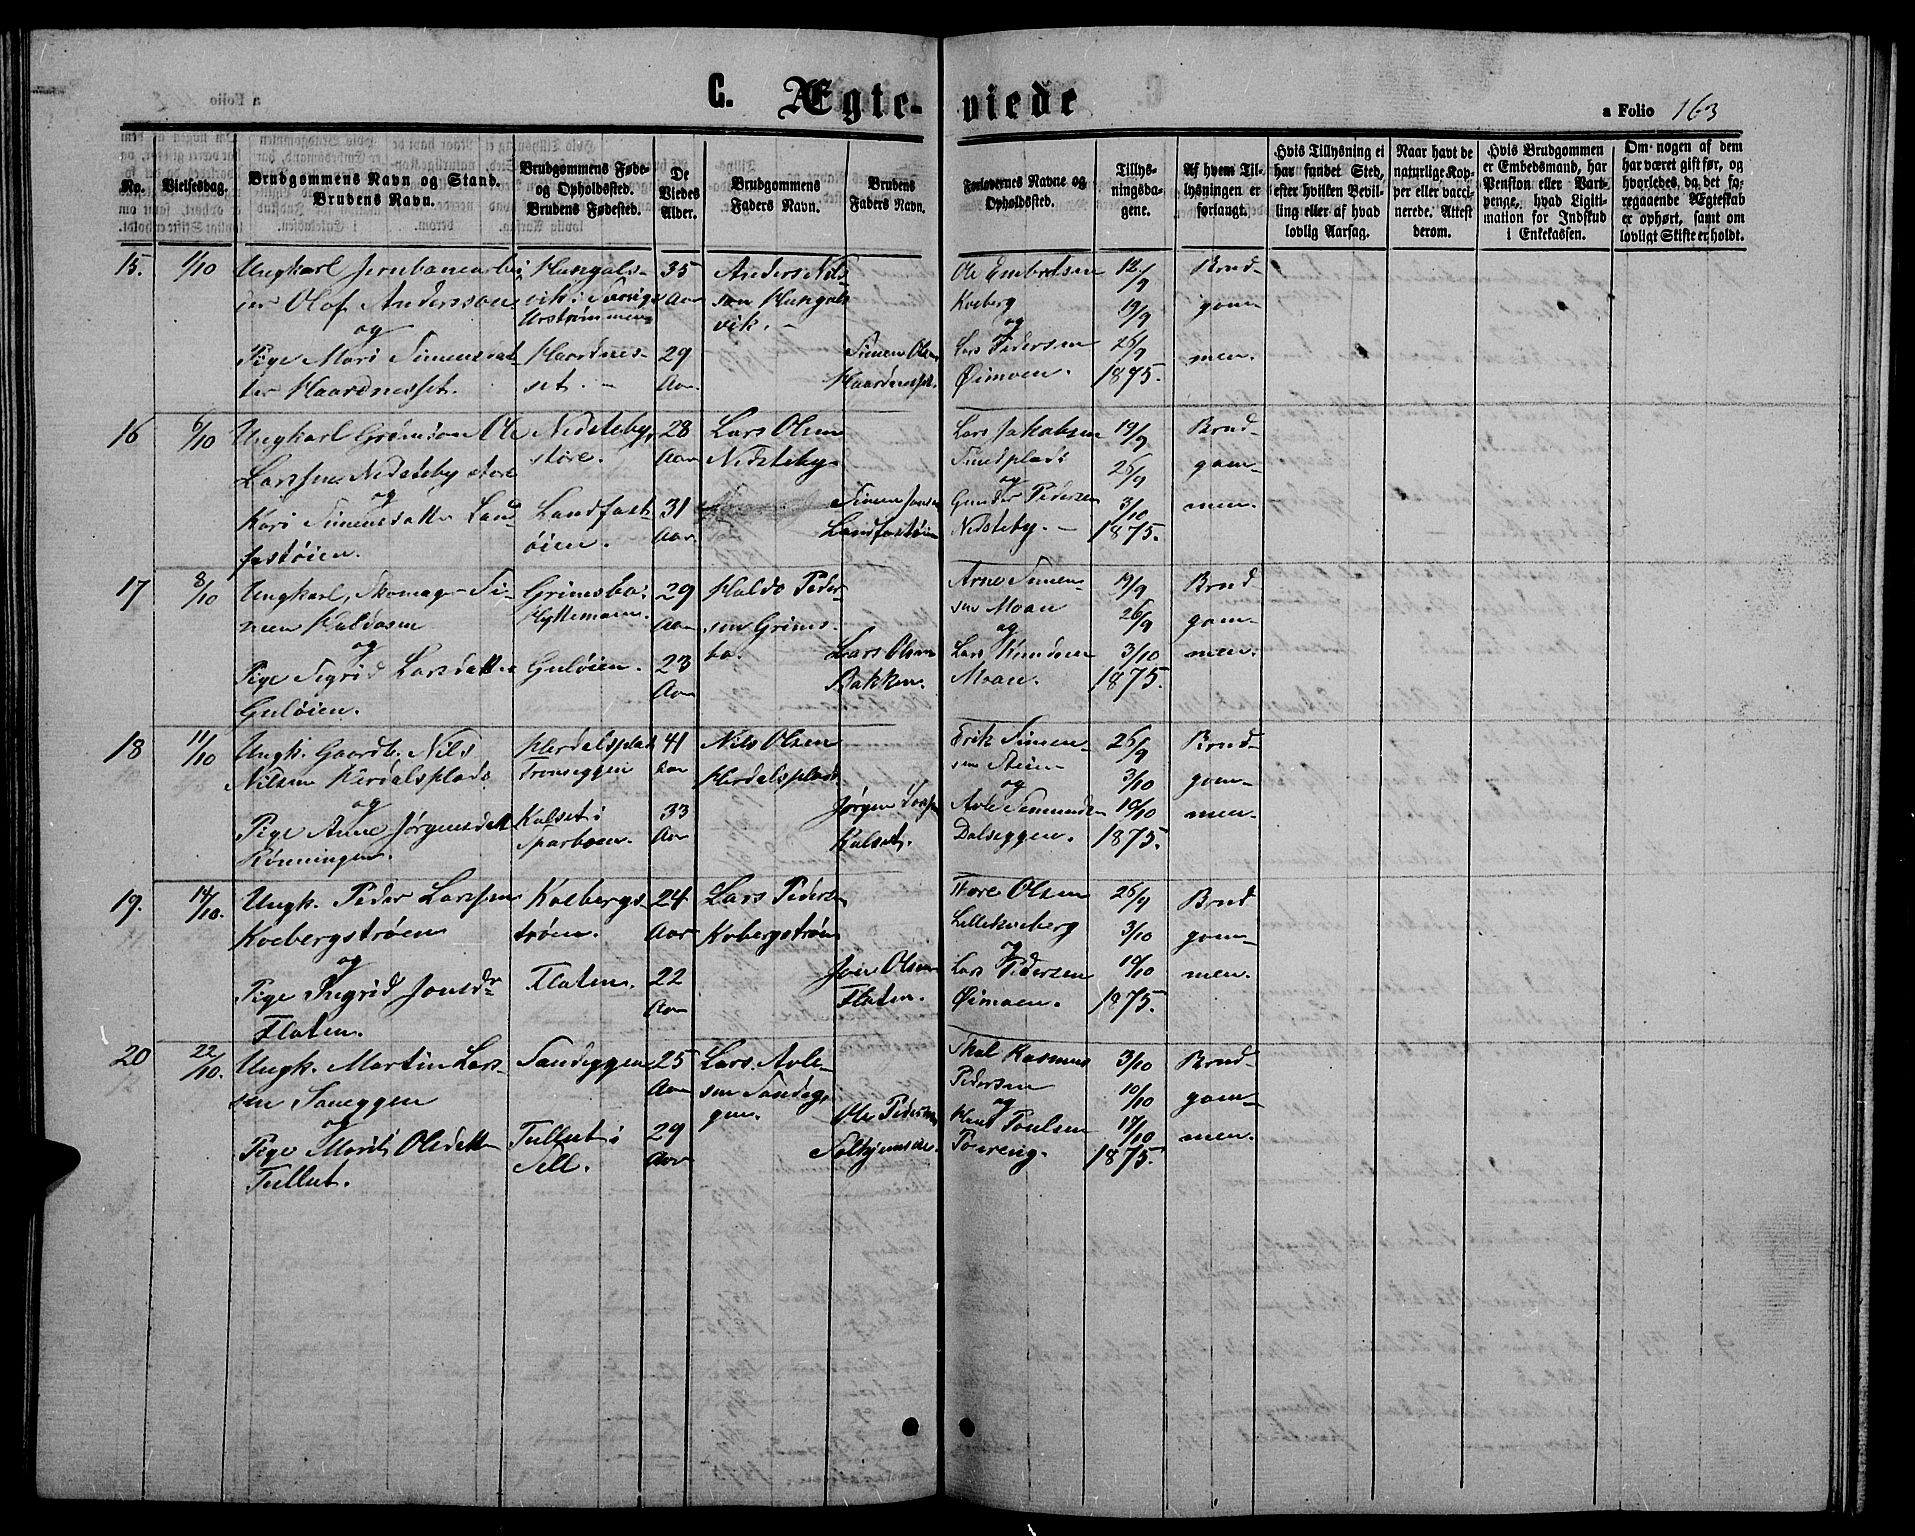 C. Ægte-viede
a Folio 163
No.
Vielsesdag.
Brudgommens Navn og Stand.
Brudens Navn.
Brudgommens Føde-
og Opholdssted.
Brudens Fødested.
De
Viedes
Alder.
Brudgommens
Faders Navn.
Brudens
Faders Navn.
Forlovernes Navne og
Opholdssted.
Tillys-
ningsda-
gene.
Af hvem Til-
lysningen er
forlangt.
Hvis Tillysning ei
har fundet Sted,
efter hvilken Bevil-
ling eller af hvad
lovlig Aarsag.
Naar havt de
naturlige Kop-
per eller vacci-
nerede. Attest
derom.
Hvis Brudgommen
er Embedsmand, har
Pension eller Vart-
penge, hvad Ligiti-
mation for Indskud
i Enkekassen.
Om nogen af dem
har været gift før, og
hvorledes, da det fo-
regaaende Ægteskab
er ophørt, samt om
lovligt Skifte er holdt.
15. 1/10 Ungkarl Jernbanearbei-
der Olof Andersson
og
Pige Mari Simensdat-
ter Haardnesset.
vik i Sverige
Urstrømmen
Haardnes-
set. –
35
Aar
29
Aar
Anders Nils-
son
vik. –
Simen Olsen
Haardnesset.
Ole Embretsen
Kveberg
og
Lars Pedersen
Øimoen.
12/9
19/9
26/9
1875.
Brud-
gom-
men.
16 6/10 Ungkarl Ole
Larssen Nedsteby store
og
Kari Simensdatter Land-
fastøien.
Nedsteby
store.
Landfast-
øien.
28
Aar
31
Aar
Lars Olsen
Nedsteby
Simen Jonsen
Landfastøien
Lars Jakobsen
og
Gunder Pedersen
Nedsteby. –
19/9
26/9
3/10
1875.
Brud-
gom-
men.
17 8/10 Ungkarl, Skomag. Si-
men Haldosen
og
Pige Sigrid Larsdatter
Guløien.
Grimsbo.
Hyttemoen.
Guløien.
29
Aar
23
Aar
Haldo Peder-
sen Grims-
bo.
Lars Olsen
Bakken.
Arne Simen-
sen Moan
og
Lars Knudsen
Moan.
19/9
26/9
3/10
1875.
Brud-
gom-
men.
18 11/10 Ungk. Gaardb. Nils
Nilsen
og
Pige Anne Jørgensdatt
Rønningen.
Tronseggen
Kalset i
Sparboen.
41
Aar
33
Aar
Nils Olsen
Jørgen
Kalset.
Erik Simen-
sen Steien
og
Avle Simensen
Dalseggen.
26/9
3/10
10/10
1875.
Brud-
gom-
men.
19. 14/10. Ungk. Peder Larssen
Kvebergstrøen
og
Pige Ingrid Jonsdr
Flaten.
Kvebergs-
trøen.
Flaten.
24
Aar
22
Aar
Lars Peders.
Kvebergstrøen
Jon Olsen
Flaten.
Tore Olsen
Lillekveberg
og
Lars Pedersen
Øimoen.
26/9
3/10
10/10
1875.
Brud
gom-
men.
20 22/10. Ungk. Martin Lars-
sen Saneggen
og
Pige Marit Olsdatt
Tullut.
Sandeggen
Tullut i
Sell.
25
Aar
29
Aar
Lars Avle-
sen Sandeg-
gen.
Ole Pedersen
Rasmus
Pedersen
og
Knut Poulsen
3/10
10/10
17/10
1875.
Brud
gom-
men.